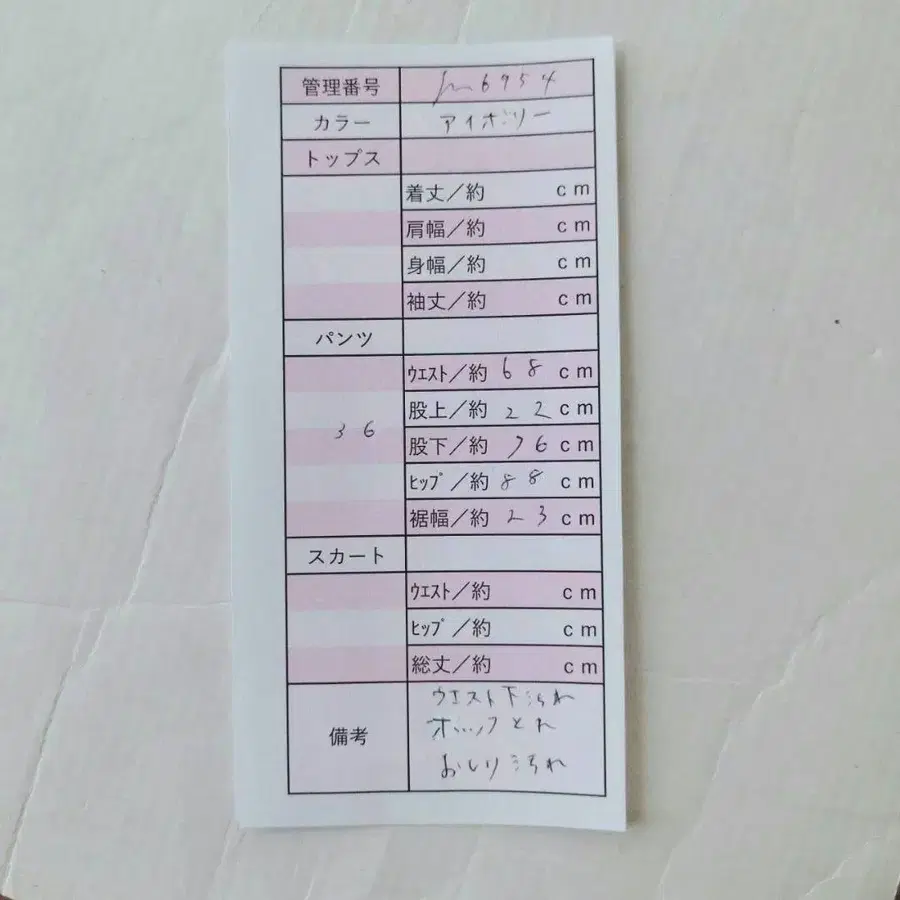 管理番号 m6954
カラー アイボリー
トップス
着丈/約 cm
肩幅/約 cm
身幅/約 cm
袖丈/約 cm
パンツ
36
ウエスト/約 68 cm
股上/約 22 cm
股下/約 76 cm
ヒップ/約 88 cm
裾幅/約 23 cm
スカート
ウエスト/約 cm
ヒップ/約 cm
総丈/約 cm
備考
ウエスト下汚れ
ホックとれ
おしり汚れ